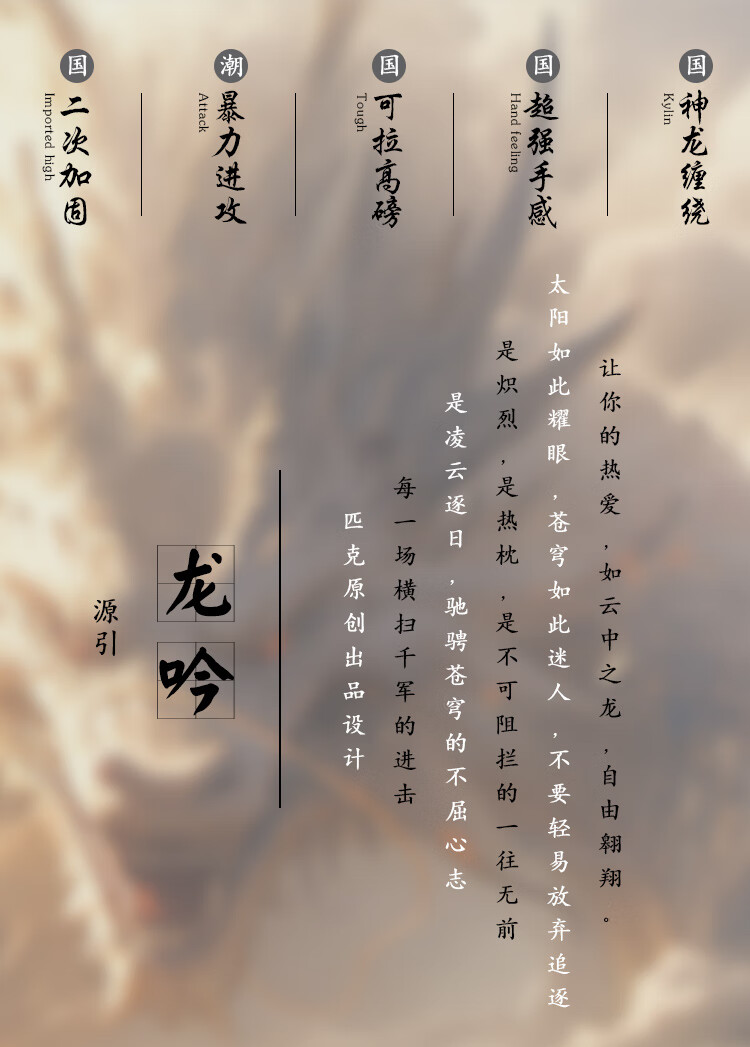 国
神龙缠绕
Kylin
国
超强手感
Hand feeling
国
可拉高磅
Tough
潮
暴力进攻
Attack
国
二次加固
Imported high
让你的热爱，如云中之龙，自由翱翔。
太阳如此耀眼，苍穹如此迷人，不要轻易放弃追逐
是炽烈，是热枕，是不可阻拦的一往无前
是凌云逐日，驰骋苍穹的不屈心志
每一场横扫千军的进击
匹克原创出品设计
龙吟
源引